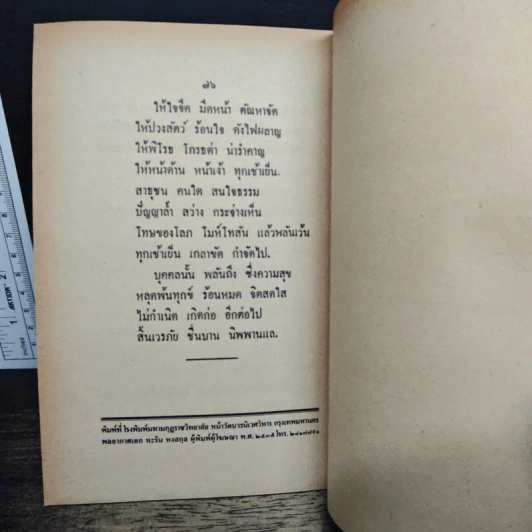 ๗๖
ให้ใจจืด มืดหน้า ตัณหาจัด
ให้ปวงสัตว์ ร้อนใจ ดังไฟผลาญ
ให้พิโรธ โกรธด่า น่ารำคาญ
ให้หน้าด้าน หน้าเง้า ทุกเช้าเย็น.
สาธุชน คนใด สนใจธรรม
ปัญญาล้ำ สว่าง กระจ่างเห็น
โทษของโลภ โมห์โทสัน แล้วพลันเว้น
ทุกเช้าเย็น เกลาขัด กำจัดไป.
บุคคลนั้น พลันถึง ซึ่งความสุข
หลุดพ้นทุกข์ ร้อนหมด จิตสดใส
ไม่กำเนิด เกิดก่อ อีกต่อไป
สิ้นเวรภัย ชื่นบาน นิพพานแล.
พิมพ์ที่ โรงพิมพ์มหามกุฏราชวิทยาลัย หน้าวัดบวรนิเวศวิหาร กรุงเทพมหานคร
พลอากาศเอก หะริน หงสกุล ผู้พิมพ์ผู้โฆษณา พ.ศ. ๒๕๓๕ โทร.